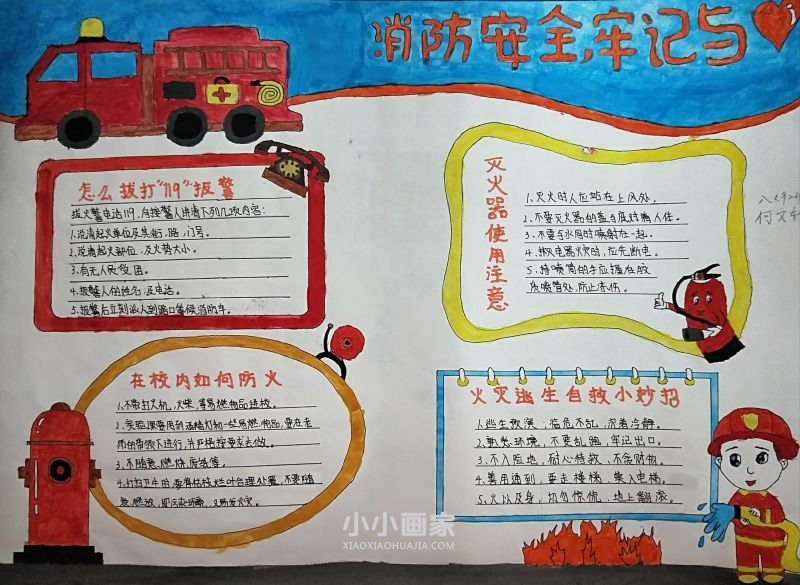 消防安全,牢记与
怎么拔打"119"报警
拔火警电话119,向接警人讲清下列几项内容:
1.说清起火单位及其街,路,门号。
2.说清起火部位,及火势大小。
3.有无人员
4.报警人的姓名,及电话。
5.报警后立刻派人到路口等候消防车。
灭火器使用注意
1.灭火时人应站在上风处。
2.不要灭火器的盖与底对着人体。
3.不要与水同时喷射在一起。
4.扑灭电器火灾时,应先断电。
5.持喷筒的手应握在胶
质喷管处,防止冻伤。
在校内如何防火
1.不带打火机,火柴,等易燃物品进校。
2.实验课要用到酒精灯和一些易燃物品,要在老
师的带领下进行,并严格按要求去做。
3.不随意,燃烧
4.打扫卫生时,要将枯枝烂叶合理处置,不要随
意燃放,即污染环境,又易发火灾。
火灾逃生自救小妙招
1.逃生救演:临危不乱,沉着冷静。
2.熟悉环境,不要乱跑,牢记出口。
3.不入险地,耐心待救,不贪财物。
4.善用通到,要走楼梯,乘入电梯。
5.火以及身,切勿惊慌,地上翻滚。
小小画家
XIAOXIAOHUAJIA.COM